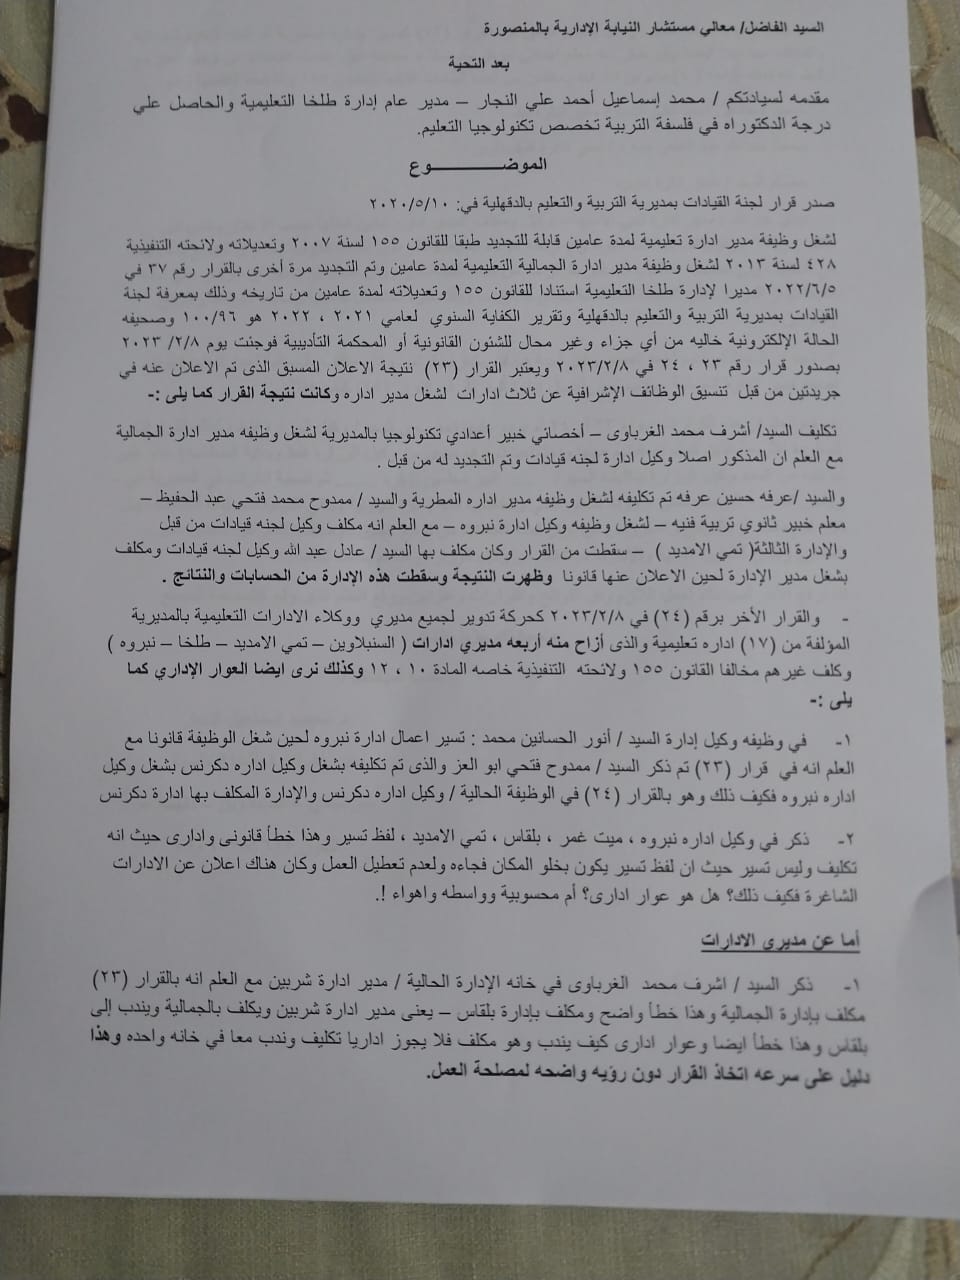 السيد الفاضل/ معالي مستشار النيابة الإدارية بالمنصورة
بعد التحية
مقدمه لسيادتكم / محمد إسماعيل أحمد علي النجار – مدير عام إدارة طلخا التعليمية والحاصل علي
درجة الدكتوراه في فلسفة التربية تخصص تكنولوجيا التعليم.
الموضـــــــــوع
صدر قرار لجنة القيادات بمديرية التربية والتعليم بالدقهلية في: ٢٠٢٠/٥/١٠
لشغل وظيفة مدير ادارة تعليمية لمدة عامين قابلة للتجديد طبقا للقانون ١٥٥ لسنة ٢٠٠٧ وتعديلاته ولائحته التنفيذية
٤٢٨ لسنة ٢٠١٣ لشغل وظيفة مدير ادارة الجمالية التعليمية لمدة عامين وتم التجديد مرة أخرى بالقرار رقم ٣٧ في
٢٠٢٢/٦/٥ مديرا لإدارة طلخا التعليمية استنادا للقانون ١٥٥ وتعديلاته لمدة عامين من تاريخه وذلك بمعرفة لجنة
القيادات بمديرية التربية والتعليم بالدقهلية وتقرير الكفاية السنوي لعامي ٢٠٢١ ، ٢٠٢٢ هو ١٠٠/٩٦ وصحيفه
الحالة الإلكترونية خاليه من أي جزاء وغير محال للشئون القانونية أو المحكمة التأديبية فوجئت يوم ٢/٨/ ٢٠٢٣
بصدور قرار رقم ٢٣ ، ٢٤ في ٢٠٢٣/٢/٨ ويعتبر القرار (٢٣) نتيجة الاعلان المسبق الذى تم الاعلان عنه في
جريدتين من قبل تنسيق الوظائف الإشرافية عن ثلاث ادارات لشغل مدير اداره وكانت نتيجة القرار كما يلى :-
تكليف السيد/ أشرف محمد الغرباوى – أخصائي خبير أعدادي تكنولوجيا بالمديرية لشغل وظيفه مدير ادارة الجمالية
مع العلم ان المذكور اصلا وكيل ادارة لجنه قيادات وتم التجديد له من قبل .
والسيد /عرفه حسين عرفه تم تكليفه لشغل وظيفه مدير اداره المطرية والسيد / ممدوح محمد فتحي عبد الحفيظ –
معلم خبير ثانوي تربية فنيه – لشغل وظيفه وكيل ادارة نبروه – مع العلم انه مكلف وكيل لجنه قيادات من قبل
والإدارة الثالثة( تمي الامديد ) – سقطت من القرار وكان مكلف بها السيد / عادل عبد الله وكيل لجنه قيادات ومكلف
بشغل مدير الإدارة لحين الاعلان عنها قانونا وظهرت النتيجة وسقطت هذه الإدارة من الحسابات والنتائج .
- والقرار الأخر برقم (٢٤) في ٢٠٢٣/٢/٨ كحركة تدوير لجميع مديري ووكلاء الادارات التعليمية بالمديرية
المؤلفة من (١٧) اداره تعليمية والذى أزاح منه أربعه مديري ادارات ( السنبلاوين – تمي الامديد – طلخا – نبروه )
وكلف غيرهم مخالفا القانون ١٥٥ ولائحته التنفيذية خاصه المادة ١٠ ، ١٢ وكذلك نرى ايضا العوار الإداري كما
يلى :-
١- في وظيفه وكيل إدارة السيد / أنور الحسانين محمد : تسير اعمال ادارة نبروه لحين شغل الوظيفة قانونا مع
العلم انه في قرار (٢٣) تم ذكر السيد / ممدوح فتحي ابو العز والذى تم تكليفه بشغل وكيل اداره دكرنس بشغل وكيل
اداره نبروه فكيف ذلك وهو بالقرار (٢٤) في الوظيفة الحالية / وكيل اداره دكرنس والإدارة المكلف بها ادارة دكرنس
٢- ذكر في وكيل اداره نبروه ، ميت غمر ، بلقاس ، تمي الامديد ، لفظ تسير وهذا خطأ قانونى وادارى حيث انه
تكليف وليس تسير حيث ان لفظ تسير يكون بخلو المكان فجاءه ولعدم تعطيل العمل وكان هناك اعلان عن الادارات
الشاغرة فكيف ذلك؟ هل هو عوار ادارى؟ أم محسوبية وواسطه واهواء !.
أما عن مديرى الادارات
١- ذكر السيد / اشرف محمد الغرباوى في خانه الإدارة الحالية / مدير ادارة شربين مع العلم انه بالقرار (٢٣)
مكلف بإدارة الجمالية وهذا خطأ واضح ومكلف بإدارة بلقاس – يعنى مدير ادارة شربين ويكلف بالجمالية ويندب إلى
بلقاس وهذا خطأ ايضا وعوار ادارى كيف يندب وهو مكلف فلا يجوز اداريا تكليف وندب معا في خانه واحده وهذا
دليل على سرعه اتخاذ القرار دون رؤيه واضحه لمصلحة العمل.